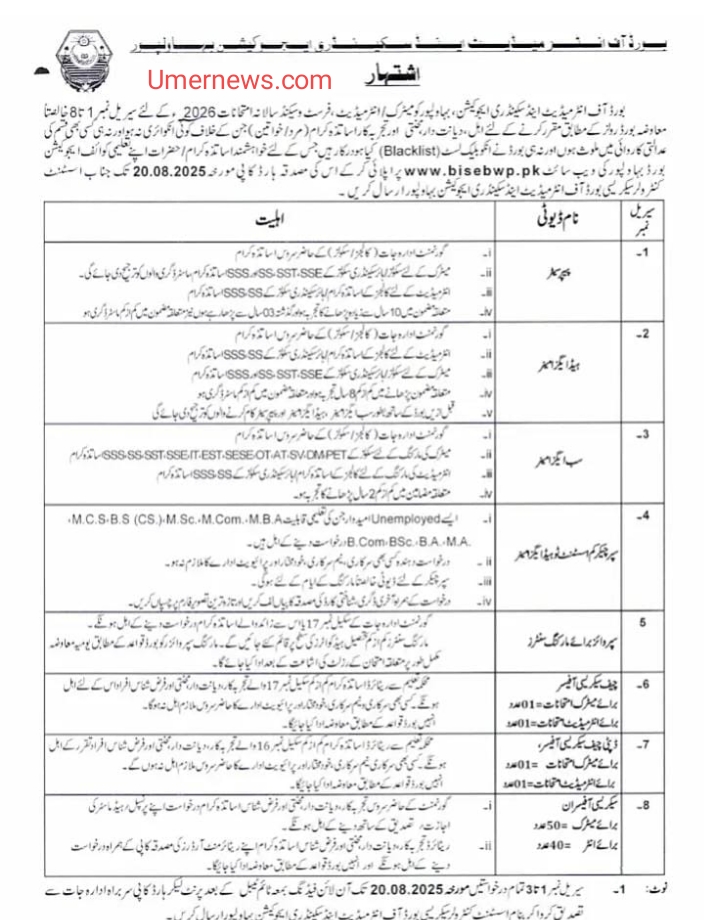 بورڈ آف انٹرمیڈیٹ اینڈ سیکینڈری ایجوکیشن بہاولپور
Umernews.com
اشتہار
بورڈ آف انٹرمیڈیٹ اینڈ سکینڈری ایجوکیشن، بہاولپور کو میٹرک/انٹرمیڈیٹ، فرسٹ و سیکنڈ سالانہ امتحانات 2026ء کے لئے سیریل نمبر 1 تا 8 خالصتاً
معاوضہ بورڈ رولز کے مطابق مقرر کرنے کے لئے اہل، دیانت دار، محنتی اور تجربہ کار اساتذہ کرام (مرد/خواتین) جن کے خلاف کوئی انکوائری نہ ہو اور نہ ہی کسی بھی قسم کی
عدالتی کاروائی میں ملوث ہوں اور نہ ہی بورڈ نے انکو بلیک لسٹ (Blacklist) کیا ہو درکار ہیں جس کے لئے خواہشمند اساتذہ کرام/حضرات اپنے تعلیمی کوائف ایجوکیشن
بورڈ بہاولپور کی ویب سائٹ www.bisebwp.pk پر اپلائی کر کے اس کی مصدقہ ہارڈ کاپی مورخہ 20.08.2025 تک جناب اسسٹنٹ
کنٹرولر سیکریسی بورڈ آف انٹرمیڈیٹ اینڈ سکینڈری ایجوکیشن بہاولپور ارسال کریں۔
سیریل نمبر نام ڈیوٹی اہلیت
1- پیپر سیٹر
i- گورنمنٹ ادارہ جات (کالجز/سکولز) کے حاضر سروس اساتذہ کرام
ii- میٹرک کے لئے سکولز/ہائر سیکینڈری سکولز کے SS-SST-SSE اور SSS اساتذہ کرام، ماسٹر ڈگری والوں کو ترجیح دی جائے گی۔
iii- انٹرمیڈیٹ کے لئے کالجز کے اساتذہ کرام/ہائر سیکینڈری سکولز کے SSS-SS اساتذہ کرام
iv- متعلقہ مضمون میں 10 سال سے زیادہ پڑھانے کا تجربہ ہو اور گذشتہ 03 سال سے پڑھا رہے ہوں نیز متعلقہ مضمون میں کم از کم ماسٹر ڈگری ہو
2- ہیڈ ایگزامینر
i- گورنمنٹ ادارہ جات (کالجز/سکولز) کے حاضر سروس اساتذہ کرام
ii- انٹرمیڈیٹ کے لئے کالجز کے اساتذہ کرام/ہائر سیکینڈری سکولز کے SSS-SS اساتذہ کرام
iii- میٹرک کے لئے سکولز/ہائر سیکینڈری سکولز کے SS-SST-SSE اور SSS اساتذہ کرام
iv- متعلقہ مضمون پڑھانے میں کم از کم 8 سال تجربہ ہو اور متعلقہ مضمون میں کم از کم ماسٹر ڈگری ہو
v- قبل ازیں بورڈ کے ساتھ بطور سب ایگزامینر، ہیڈ ایگزامینر اور پیپر سیٹر کام کرنے والوں کو ترجیح دی جائے گی
3- سب ایگزامینر
i- گورنمنٹ ادارہ جات (کالجز/سکولز) کے حاضر سروس اساتذہ کرام
ii- میٹرک کی مارکنگ کے لئے سکولز کے SSS-SS-SST-SSE-IT-EST-SESE-OT-AT-SV-DM-PET اساتذہ کرام
iii- انٹرمیڈیٹ کی مارکنگ کے لئے کالجز کے اساتذہ کرام/ہائر سیکینڈری سکولز کے SSS-SS اساتذہ کرام
iv- متعلقہ مضامین میں کم از کم 2 سال پڑھانے کا تجربہ ہو۔
4- سپر چیکر کم اسسٹنٹ ٹو ہیڈ ایگزامینر
i- ایسے Unemployed امیدوار جن کی تعلیمی قابلیت M.C.S، B.S (CS.)، M.Sc، M.Com، M.B.A،
B.Com، BSc، B.A، M.A. درخواست دینے کے اہل ہیں۔
ii- درخواست دہندہ کسی بھی سرکاری، نیم سرکاری، خودمختار اور پرائیویٹ ادارے کا ملازم نہ ہو۔
iii- سپر چیکر کے لئے ڈیوٹی خالصتاً مارکنگ کے ایام کے لئے ہوگی۔
iv- درخواست کے ہمراہ آخری ڈگری، شناختی کارڈ کی مصدقہ کاپیاں لف کریں اور تازہ ترین تصویر فارم پر چسپاں کریں۔
5 سپروائزر برائے مارکنگ سنٹرز
گورنمنٹ ادارہ جات کے سکیل نمبر 17 یا اس سے زائد والے اساتذہ کرام درخواست دینے کے اہل ہونگے۔
مارکنگ سنٹرز کم از کم تحصیل ہیڈ کوارٹرز کی سطح پر قائم کئے جائیں گے۔ مارکنگ سپروائزر کو بورڈ قواعد کے مطابق یومیہ معاوضہ
مکمل طور پر متعلقہ امتحان کے رزلٹ کی اشاعت کے بعد ادا کیا جائے گا۔
6- چیف سیکریسی آفیسر
برائے میٹرک امتحانات =01 عدد
برائے انٹرمیڈیٹ امتحانات =01 عدد
محکمہ تعلیم سے ریٹائرڈ اساتذہ کرام کم از کم سکیل نمبر 17 والے تجربہ کار، دیانت دار، محنتی اور فرض شناس افراد اس کے لئے اہل
ہونگے۔ کسی بھی سرکاری و نیم سرکاری، خودمختار اور پرائیویٹ ادارے کا حاضر سروس ملازم اہل نہ ہوگا۔
انہیں بورڈ قواعد کے مطابق معاوضہ ادا کیا جائیگا۔
7- ڈپٹی چیف سیکریسی آفیسر
برائے میٹرک امتحانات =01 عدد
برائے انٹرمیڈیٹ امتحانات =01 عدد
محکمہ تعلیم سے ریٹائرڈ اساتذہ کرام کم از کم سکیل نمبر 16 والے تجربہ کار، دیانت دار، محنتی اور فرض شناس افراد تقرر کے اہل
ہونگے۔ کسی بھی سرکاری، نیم سرکاری، خودمختار اور پرائیویٹ ادارے کا حاضر سروس ملازم اہل نہ ہوں گے۔
انہیں بورڈ قواعد کے مطابق معاوضہ ادا کیا جائیگا۔
8- سیکریسی آفیسران
برائے میٹرک =50 عدد
برائے انٹر =40 عدد
i- گورنمنٹ کے حاضر سروس تجربہ کار، دیانت دار، محنتی اور فرض شناس اساتذہ کرام درخواست اپنے پرنسپل/ہیڈ ماسٹر کی
اجازت/تصدیق کے ساتھ دینے کے اہل ہونگے۔
ii- ریٹائرڈ تجربہ کار، دیانت دار، محنتی اور فرض شناس اساتذہ کرام اپنے ریٹائرمنٹ آرڈرز کی مصدقہ کاپی کے ہمراہ درخواست
دینے کے اہل ہونگے اور انہیں بورڈ قواعد کے مطابق معاوضہ ادا کیا جائیگا۔
نوٹ: 1- سیریل نمبر 1 تا 3 تمام درخواستیں مورخہ 20.08.2025 تک آن لائن فیڈنگ بمعہ ٹائم ٹیبل کے بعد پرنٹ لیکر ہارڈ کاپی سربراہ ادارہ جات سے
تصدیق کروا کر بنام اسسٹنٹ کنٹرولر سیکریسی بورڈ آف انٹرمیڈیٹ اینڈ سکینڈری ایجوکیشن بہاولپور ارسال کریں۔